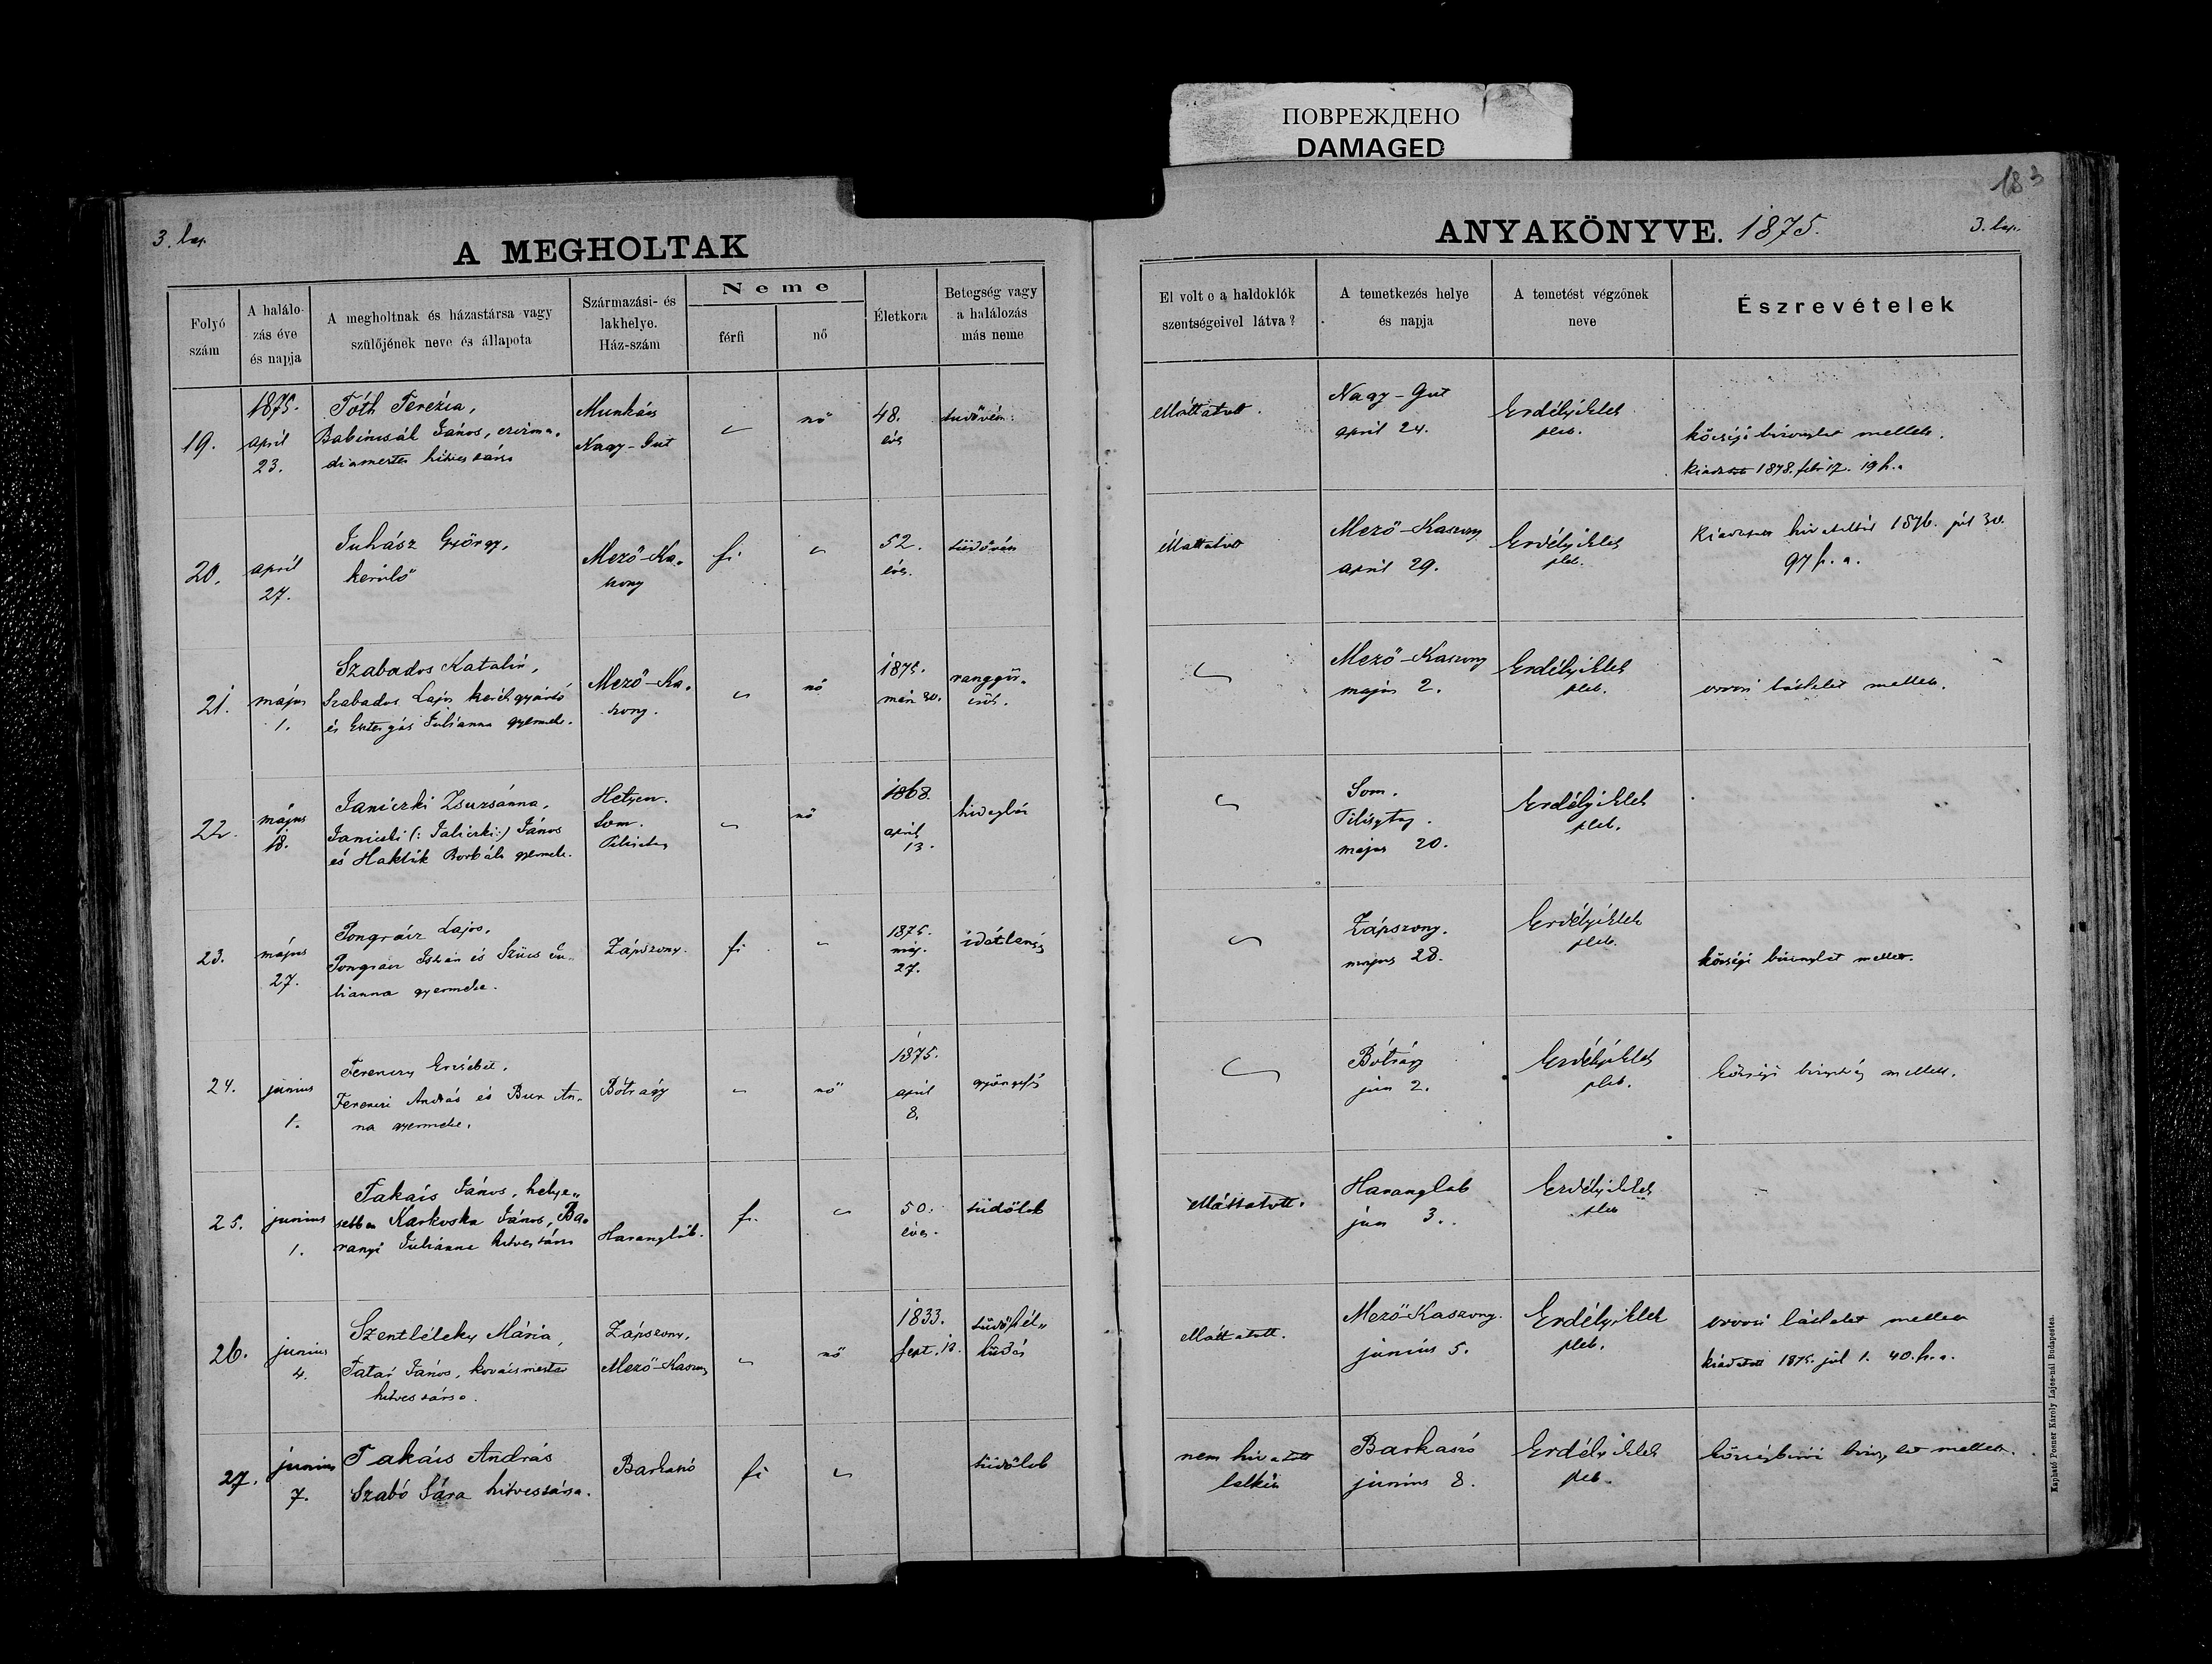 ПОВРЕЖДЕНО
DAMAGED
183
3. lap.
A MEGHOLTAK
ANYAKÖNYVE. 1875.
3. lap.
Folyó
szám
A halálo-
zás éve
és napja
A megholtnak és házastársa vagy
szülőjének neve és állapota
Származási- és
lakhelye.
Ház-szám
Neme
férfi
nő
Életkora
Betegség vagy
a halálozás
más neme
El volt e a haldoklók
szentségeivel látva?
A temetkezés helye
és napja
A temetést végzőnek
neve
Észrevételek
19.
1875.
april
23.
Tóth Terézia,
János, csizma-
diamester hitvestársa
Munkács
Nagy-Gut
nő
48.
éves
tüdővész
Elláttatott.
Nagy-Gut
april 24.
Erdélyi Elek
pleb.
községi bizonylat mellett.
kiadatott 1878. febr 17. 19 h. a
20.
april
27.
Juhász György,
kerülő
Mező-Ka-
szony
fi
52.
éves.
tüdővész
Elláttatott
Mező-Kaszony
april 29.
Erdélyi Elek
pleb.
Kiadatott hivatalból 1876. júl 30.
97 h. a.
21.
május
1.
Szabados Katalin,
Szabados Lajos kerékgyártó
és Julianna gyermeke.
Mező-Ka-
szony.
nő
1875.
már 30.
ranggör-
csök.
Mező-Kaszony
május 2.
Erdélyi Elek
pleb.
orvosi láttelet mellett.
22.
május
18.
Janiczki Zsuzsánna,
(: Jaliczki :) János
és Haklik Borbála gyermeke.
Hetyen.
Som.
nő
1868.
april
13.
hidegláz
Som.
május 20.
Erdélyi Elek
pleb.
23.
május
27.
Pongrácz Lajos,
Pongrácz István és Szűcs Ju-
lianna gyermeke.
Zápszony.
fi
1875.
máj.
27.
idétlenség
Zápszony.
május 28.
Erdélyi Elek
pleb.
községi bizonylat mellett.
24.
június
1.
Ferenczy Erzsébet,
Ferenczi András és An-
na gyermeke.
Bótrágy
nő
1875.
april
8.
gyöngeség
Bótrágy
jún 2.
Erdélyi Elek
pleb.
községi mellett.
25.
június
1.
Takács János, helye-
sebben Karkoska János, Ba-
ranyi Juliánna hitvestársa
Harangláb.
fi.
50.
éves.
tüdőlob
Elláttatott.
Harangláb
jún 3.
Erdélyi Elek
pleb
26.
június
4.
Szentléleky Mária,
Tatár János, kovácsmester
hitvestársa.
Zápszony,
Mező-Kaszony
nő
1833.
sept. 12.
tüdőhél-
hűdés
Elláttatott.
Mező-Kaszony.
június 5.
Erdélyi Elek
pleb.
orvosi láttelet mellett
kiadatott 1875. júl 1. 40. h. a.
27.
június
7.
Takács András
Szabó Sára hitvestársa.
Barkaszó
fi
tüdőlob
nem hivatott
lelkész
Barkaszó
június 8.
Erdélyi Elek
pleb.
községbírói mellett.
Kapható Posner Károly Lajos-nál Budapesten.